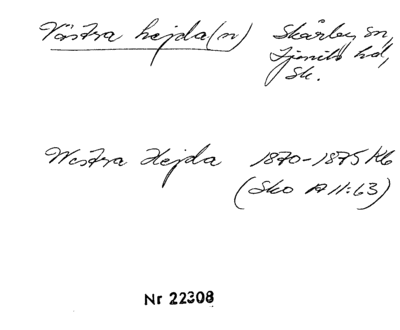 Västra hejda(n) Skårby sn,
Ljunits hd,
Sk.
Westra Hejda 1870-1875 Kb
(Sko A II:63)
Nr 22308